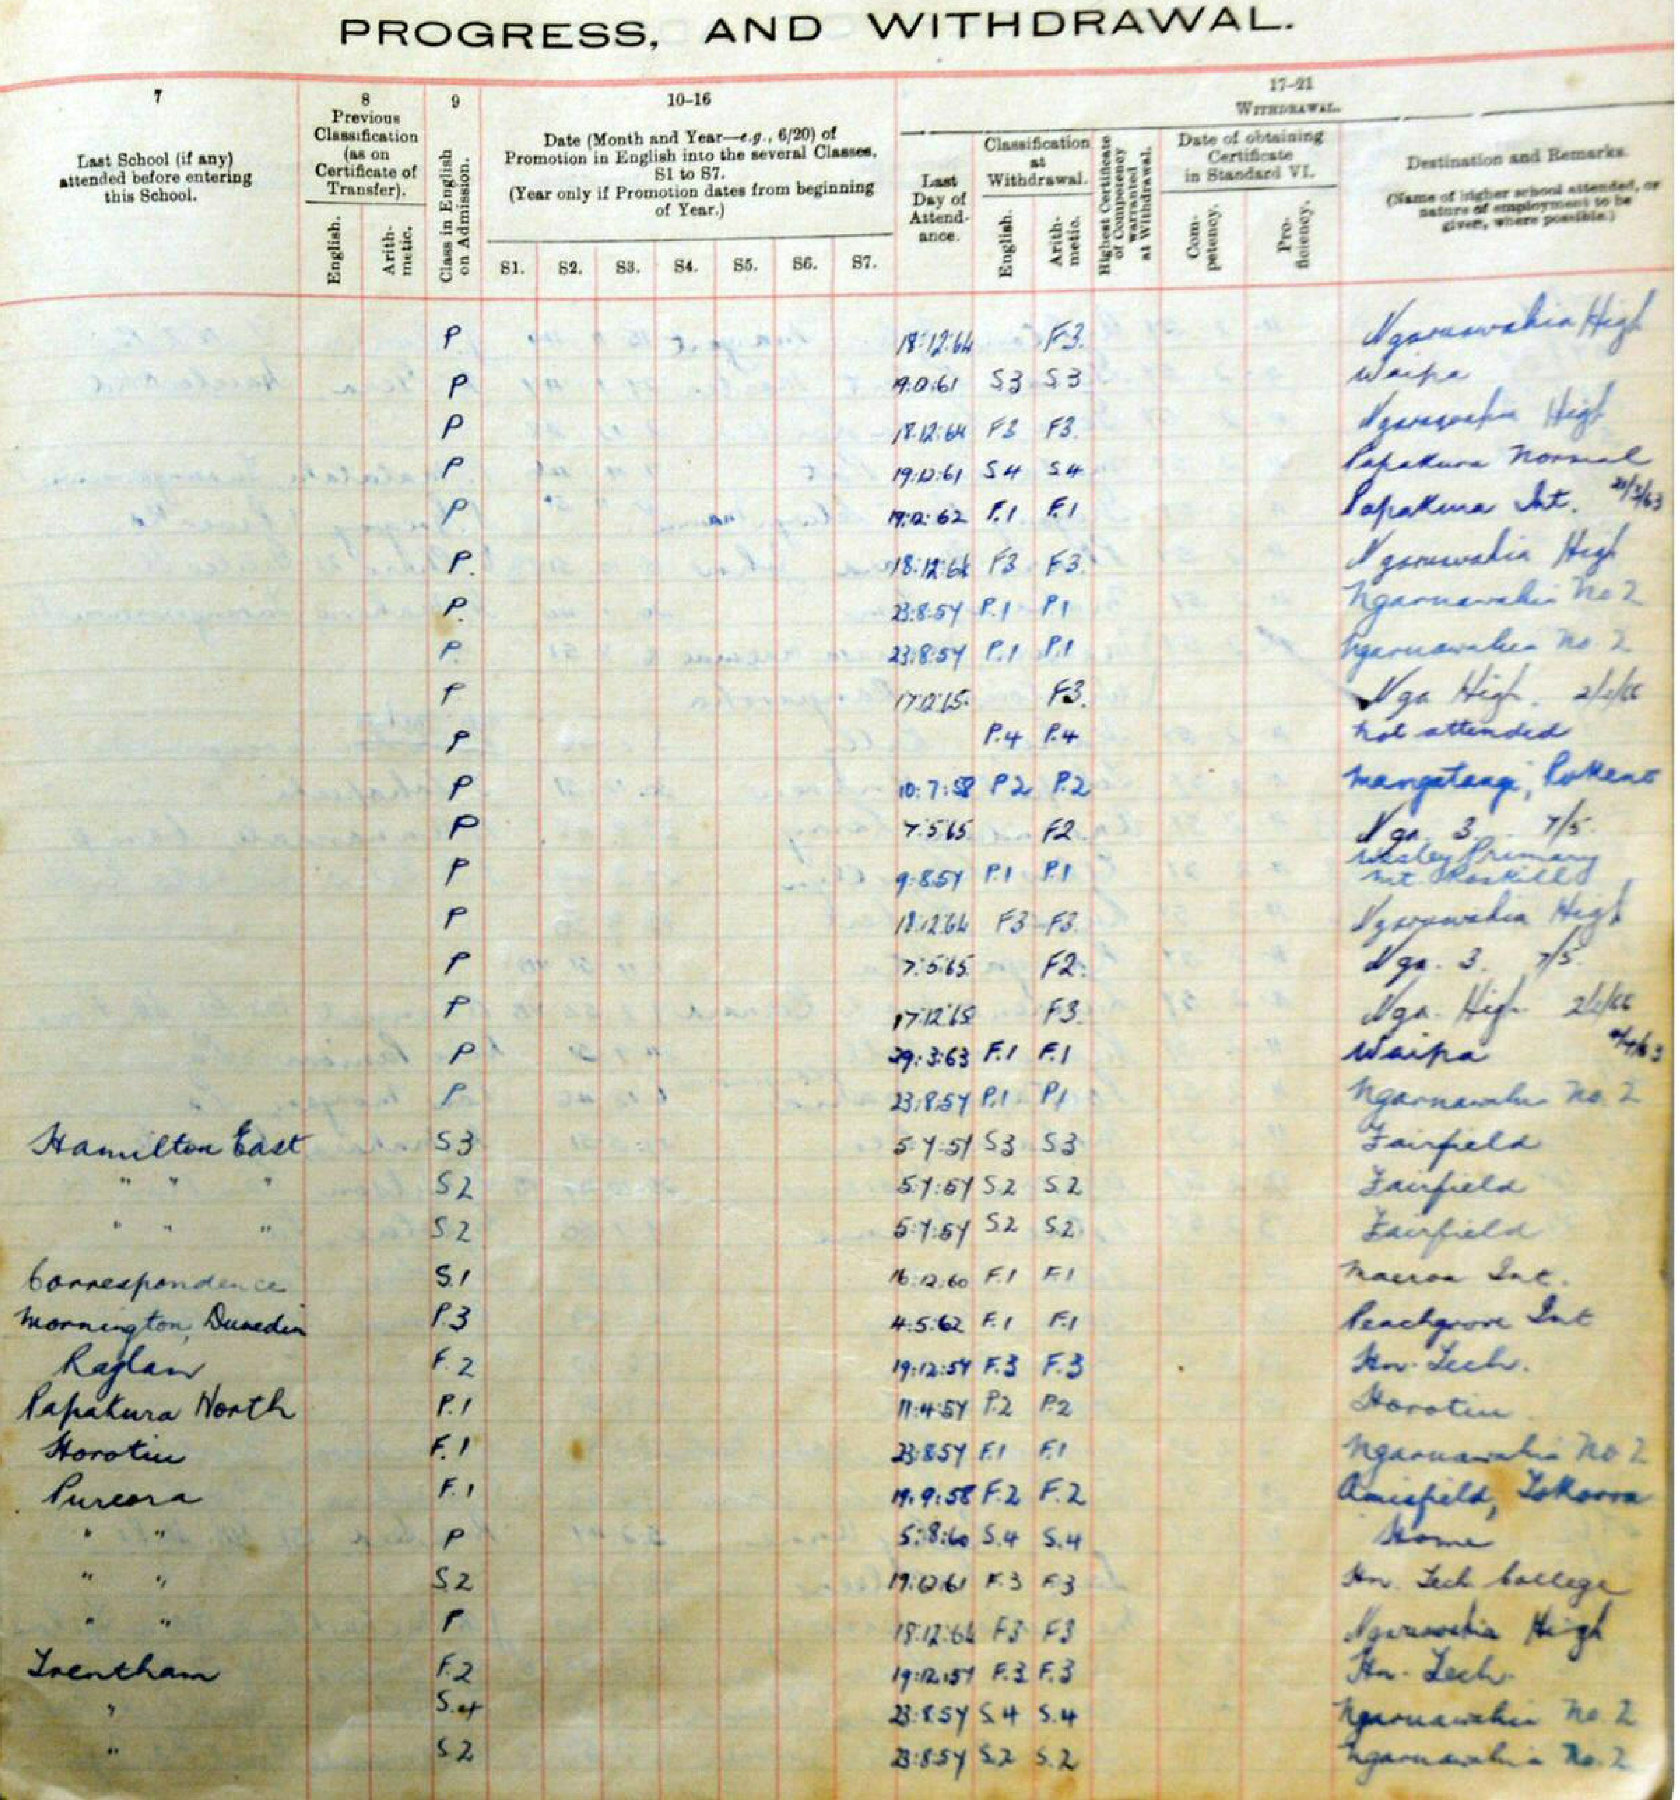 PROGRESS, AND WITHDRAWAL.
7
8
9
10–16
17–21
Last School (if any) attended before entering this School.
Previous Classification (as on Certificate of Transfer).
English.
Arith-metic.
Class in English on Admission.
Date (Month and Year—e.g., 6/20) of Promotion in English into the several Classes, S1 to S7.
(Year only if Promotion dates from beginning of Year.)
S1. S2. S3. S4. S5. S6. S7.
WITHDRAWAL.
Last Day of Attend-ance.
Classification at Withdrawal.
English.
Arith-metic.
Highest Certificate of Competency warranted at Withdrawal.
Date of obtaining Certificate in Standard VI.
Com-petency.
Pro-ficiency.
Destination and Remarks.
(Name of higher school attended, or nature of employment to be given, where possible.)
P 18:12:64 F3. Ngaruawahia High
P 19:12:61 S3 S3 Waipa
P 18:12:64 F3 F3. Ngaruawahia High
P 19:12:61 S4 S4 Papakura Normal
P 19:12:62 F.1 F.1 Papakura Int.
P. 18:12:64 F3 F3. Ngaruawahia High
P. 23:8:57 P.1 P1 Ngaruawahia No 2
P. 23:8:57 P.1 P.1 Ngaruawahia No. 2
P 17:12:65. F3. Nga High. 2/2/66
P P.4 P.4 Not attended
P 10:7:58 P2 P.2 Mangatangi, Pokeno
P 7:5:65 F2 Nga. 3. 7/5.
P 9:8:57 P.1 P.1 Wesley Primary Mt. Roskill
P 18:12:64 F3 F3. Ngaruawahia High
P 7:5:65 F2. Nga. 3. 7/5.
P 17:12:65 F3. Nga. High 2/2/66
P 29:3:63 F.1 F.1 Waipa
P 23:8:57 P.1 P1 Ngaruawahia No. 2
Hamilton East S3 5:7:57 S3 S3 Fairfield
" " " S2 5:7:57 S2 S.2 Fairfield
" " " S.2 5:7:57 S2 S2 Fairfield
Correspondence S.1 16:12:60 F.1 F.1 Maeroa Int.
Mornington, Dunedin P.3 4:5:62 F.1 F.1 Peachgrove Int
Raglan F.2 19:12:57 F.3 F.3 Hn. Tech.
Papakura North P.1 11:4:57 P2 P.2 Horotiu
Horotiu F.1 23:8:57 F.1 F.1 Ngaruawahia No 2
Pureora F.1 19:9:58 F.2 F.2 Amisfield, Tokoroa
" " P 5:8:60 S.4 S.4 Home
" " S2 19:12:61 F.3 F.3 Hn. Tech College
" " P 18:12:64 F3 F3 Ngaruawahia High
Trentham F.2 19:12:57 F.3 F.3 Hn. Tech.
" S.4 23:8:57 S.4 S.4 Ngaruawahia No. 2
" S2 23:8:57 S.2 S.2 Ngaruawahia No. 2